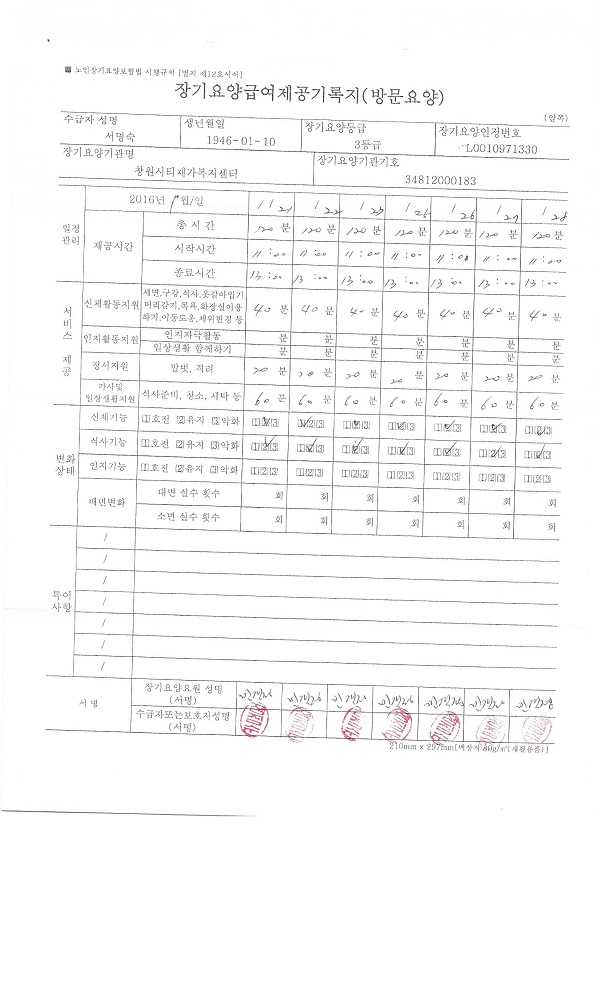 ■ 노인장기요양보험법 시행규칙 [별지 제12호서식]
장기요양급여제공기록지(방문요양)
(앞쪽)
수급자 성명 생년월일 장기요양등급 장기요양인정번호
서명숙 1946-01-10 3등급 L0010971330
장기요양기관명 장기요양기관기호
창원시티재가복지센터 34812000183
2016년 월/일 1/21 1/22 1/23 1/25 1/26 1/27 1/28
일정관리 제공시간 총 시 간 120 분 120 분 120 분 120 분 120 분 120 분 120 분
시작시간 11:00 11:00 11:00 11:00 11:00 11:00 11:00
종료시간 13:00 13:00 13:00 13:00 13:00 13:00 13:00
서비스 제공 신체활동지원 세면,구강,식사,옷갈아입기
머리감기,목욕,화장실이용
하기,이동도움,체위변경 등 40 분 40 분 40 분 40 분 40 분 40 분 40 분
인지활동지원 인지자극활동 분 분 분 분 분 분 분
일상생활 함께하기 분 분 분 분 분 분 분
정서지원 말벗, 격려 20 분 20 분 20 분 20 분 20 분 20 분 20 분
가사및
일상생활지원 식사준비, 청소, 세탁 등 60 분 60 분 60 분 60 분 60 분 60 분 60 분
변화상태 신체기능 1호전 2유지 3악화 123 123 123 123 123 123 123
식사기능 1호전 2유지 3악화 123 123 123 123 123 123 123
인지기능 1호전 2유지 3악화 123 123 123 123 123 123 123
배변변화 대변 실수 횟수 회 회 회 회 회 회 회
소변 실수 횟수 회 회 회 회 회 회 회
특이사항 /
/
/
/
/
/
/
서 명 장기요양요원 성명
(서명)
수급자또는보호자성명
(서명)
210mm x 297mm[백상지 80g/㎡(재활용품)]